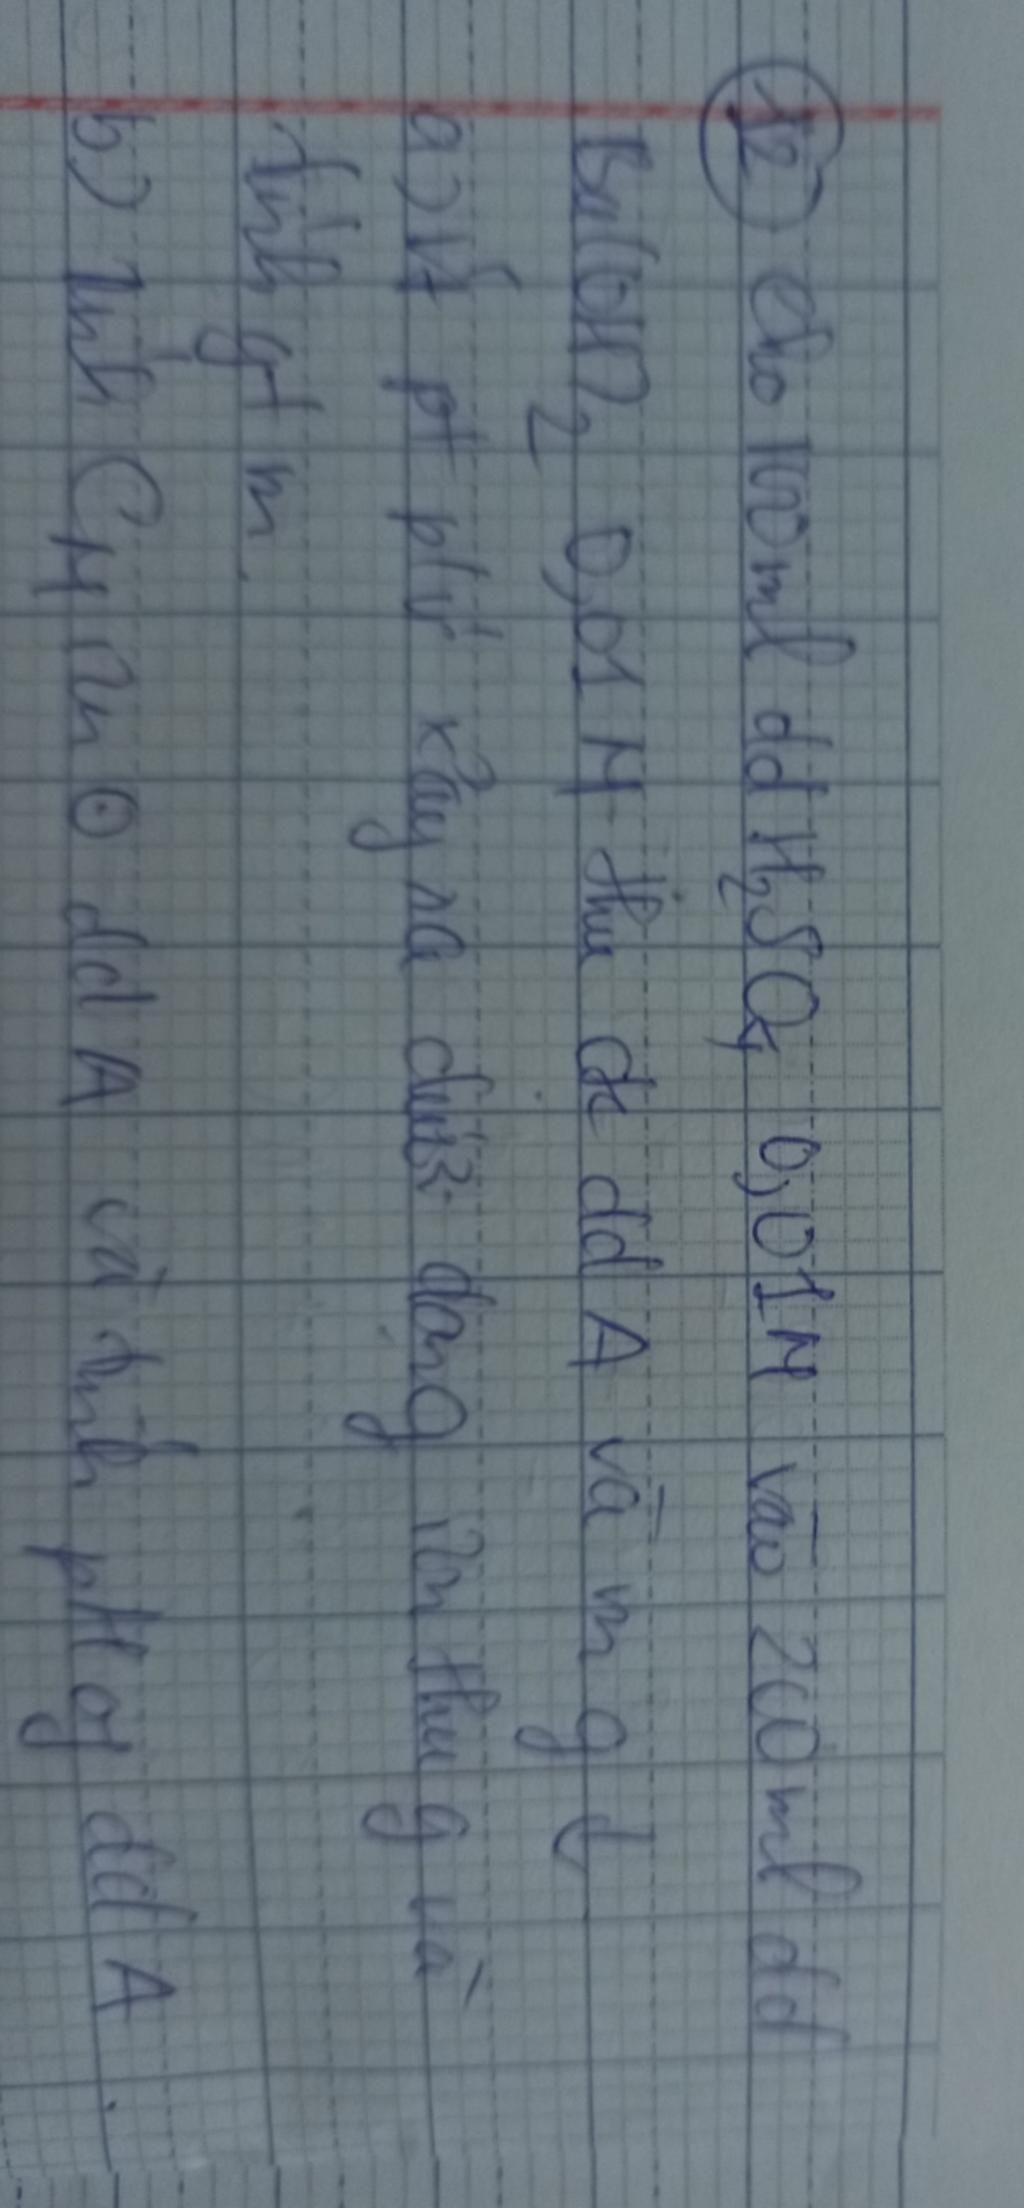 12) Cho 100ml dd H₂SO₄ 0,01M vào 200ml dd
Ba(OH)₂ 0,01M thu đc dd A và m g ↓
a) Vt pt pứ xảy ra dưới dạng ion thu g và
tính gt m.
b) Tính CM ion dd A và tính pH of dd A.